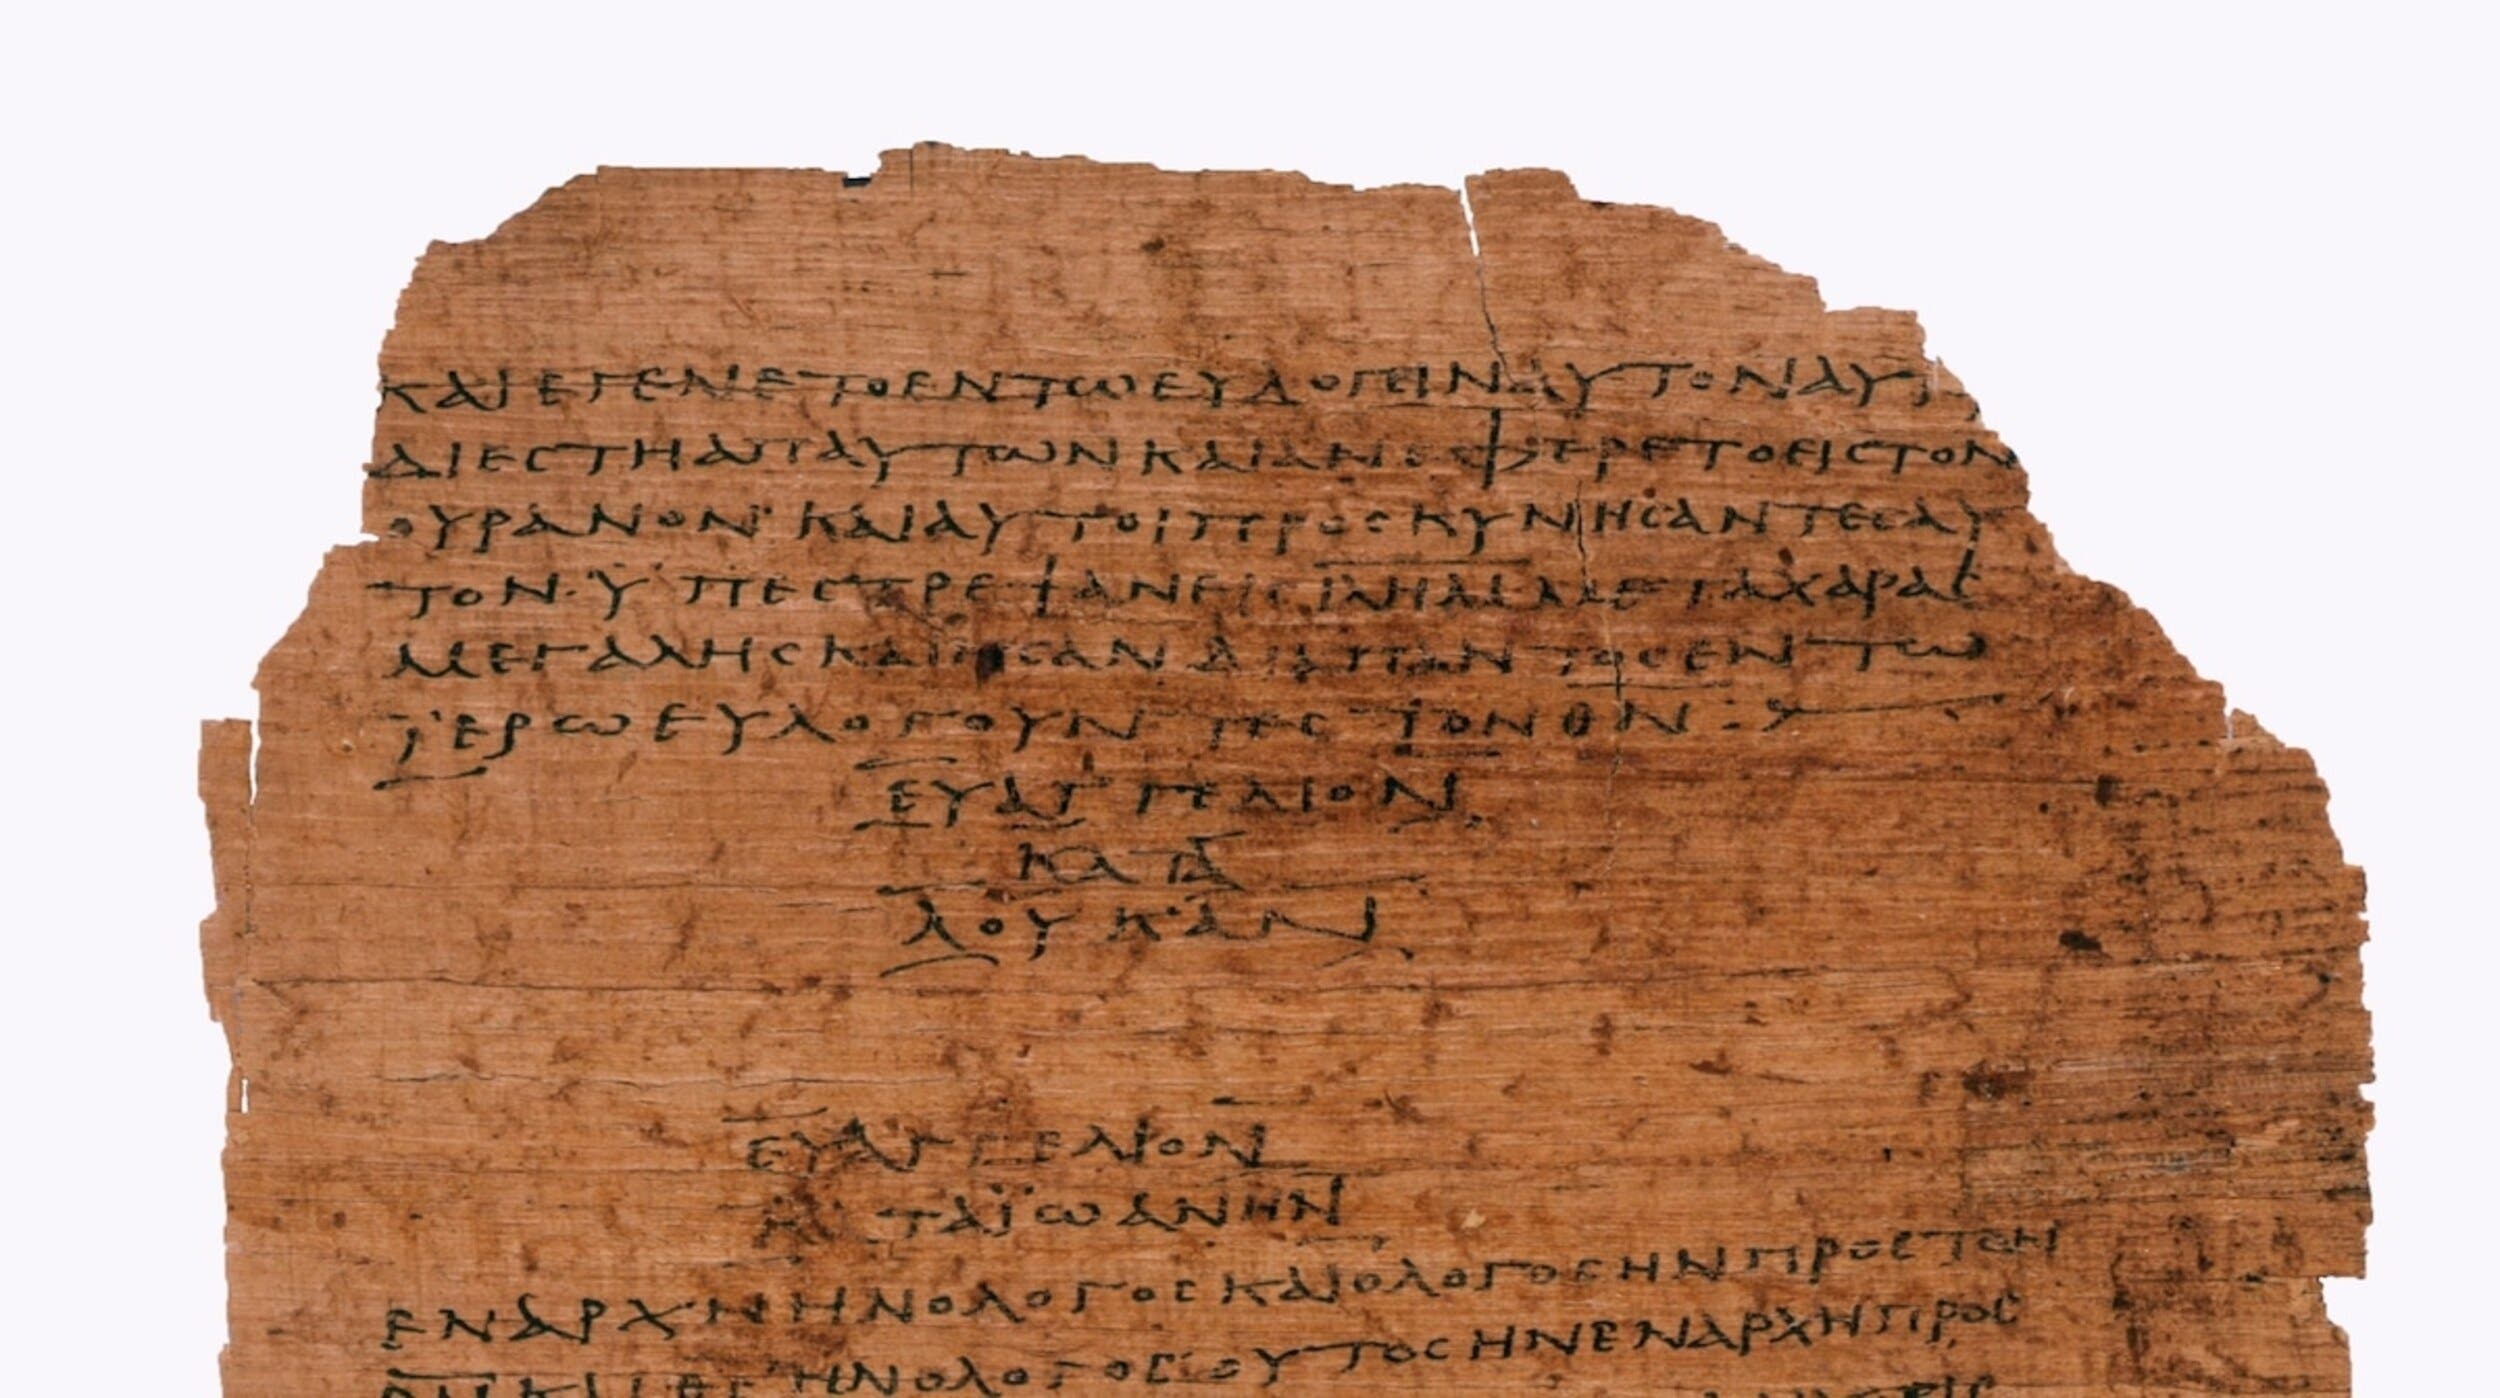 ΚΑΙΕΓΕΝΕΤΟΕΝΤΩΕΥΛΟΓΕΙΝΑΥΤΟΝΑΥ
ΔΙΕΣΤΗΑΠΑΥΤΩΝΚΑΙΑΝΕΦΕΡΕΤΟΕΙΣΤΟΝ
ΟΥΡΑΝΟΝ·ΚΑΙΑΥΤΟΙΠΡΟΣΚΥΝΗΣΑΝΤΕΣΑΥ
ΤΟΝ·ΫΠΕΣΤΡΕΨΑΝΕΙΣΙΛΗΜΜΕΤΑΧΑΡΑΣ
ΜΕΓΑΛΗΣΚΑΙΗΣΑΝΔΙΑΠΑΝΤΟΣΕΝΤΩ
ΪΕΡΩΕΥΛΟΓΟΥΝΤΕΣΤΟΝΘ̅Ν̅:
ΕΥΑΓΓΕΛΙΟΝ
ΚΑΤΑ
ΛΟΥΚΑΝ
ΕΥΑΓΓΕΛΙΟΝ
ΚΑΤΑΪΩΑΝΗΝ
ΕΝΑΡΧΗΗΝΟΛΟΓΟΣΚΑΙΟΛΟΓΟΣΗΝΠΡΟΣΤΟΝ
Θ̅Ν̅ΚΑΙΘ̅Σ̅ΗΝΟΛΟΓΟΣΟΥΤΟΣΗΝΕΝΑΡΧΗΠΡΟΣ